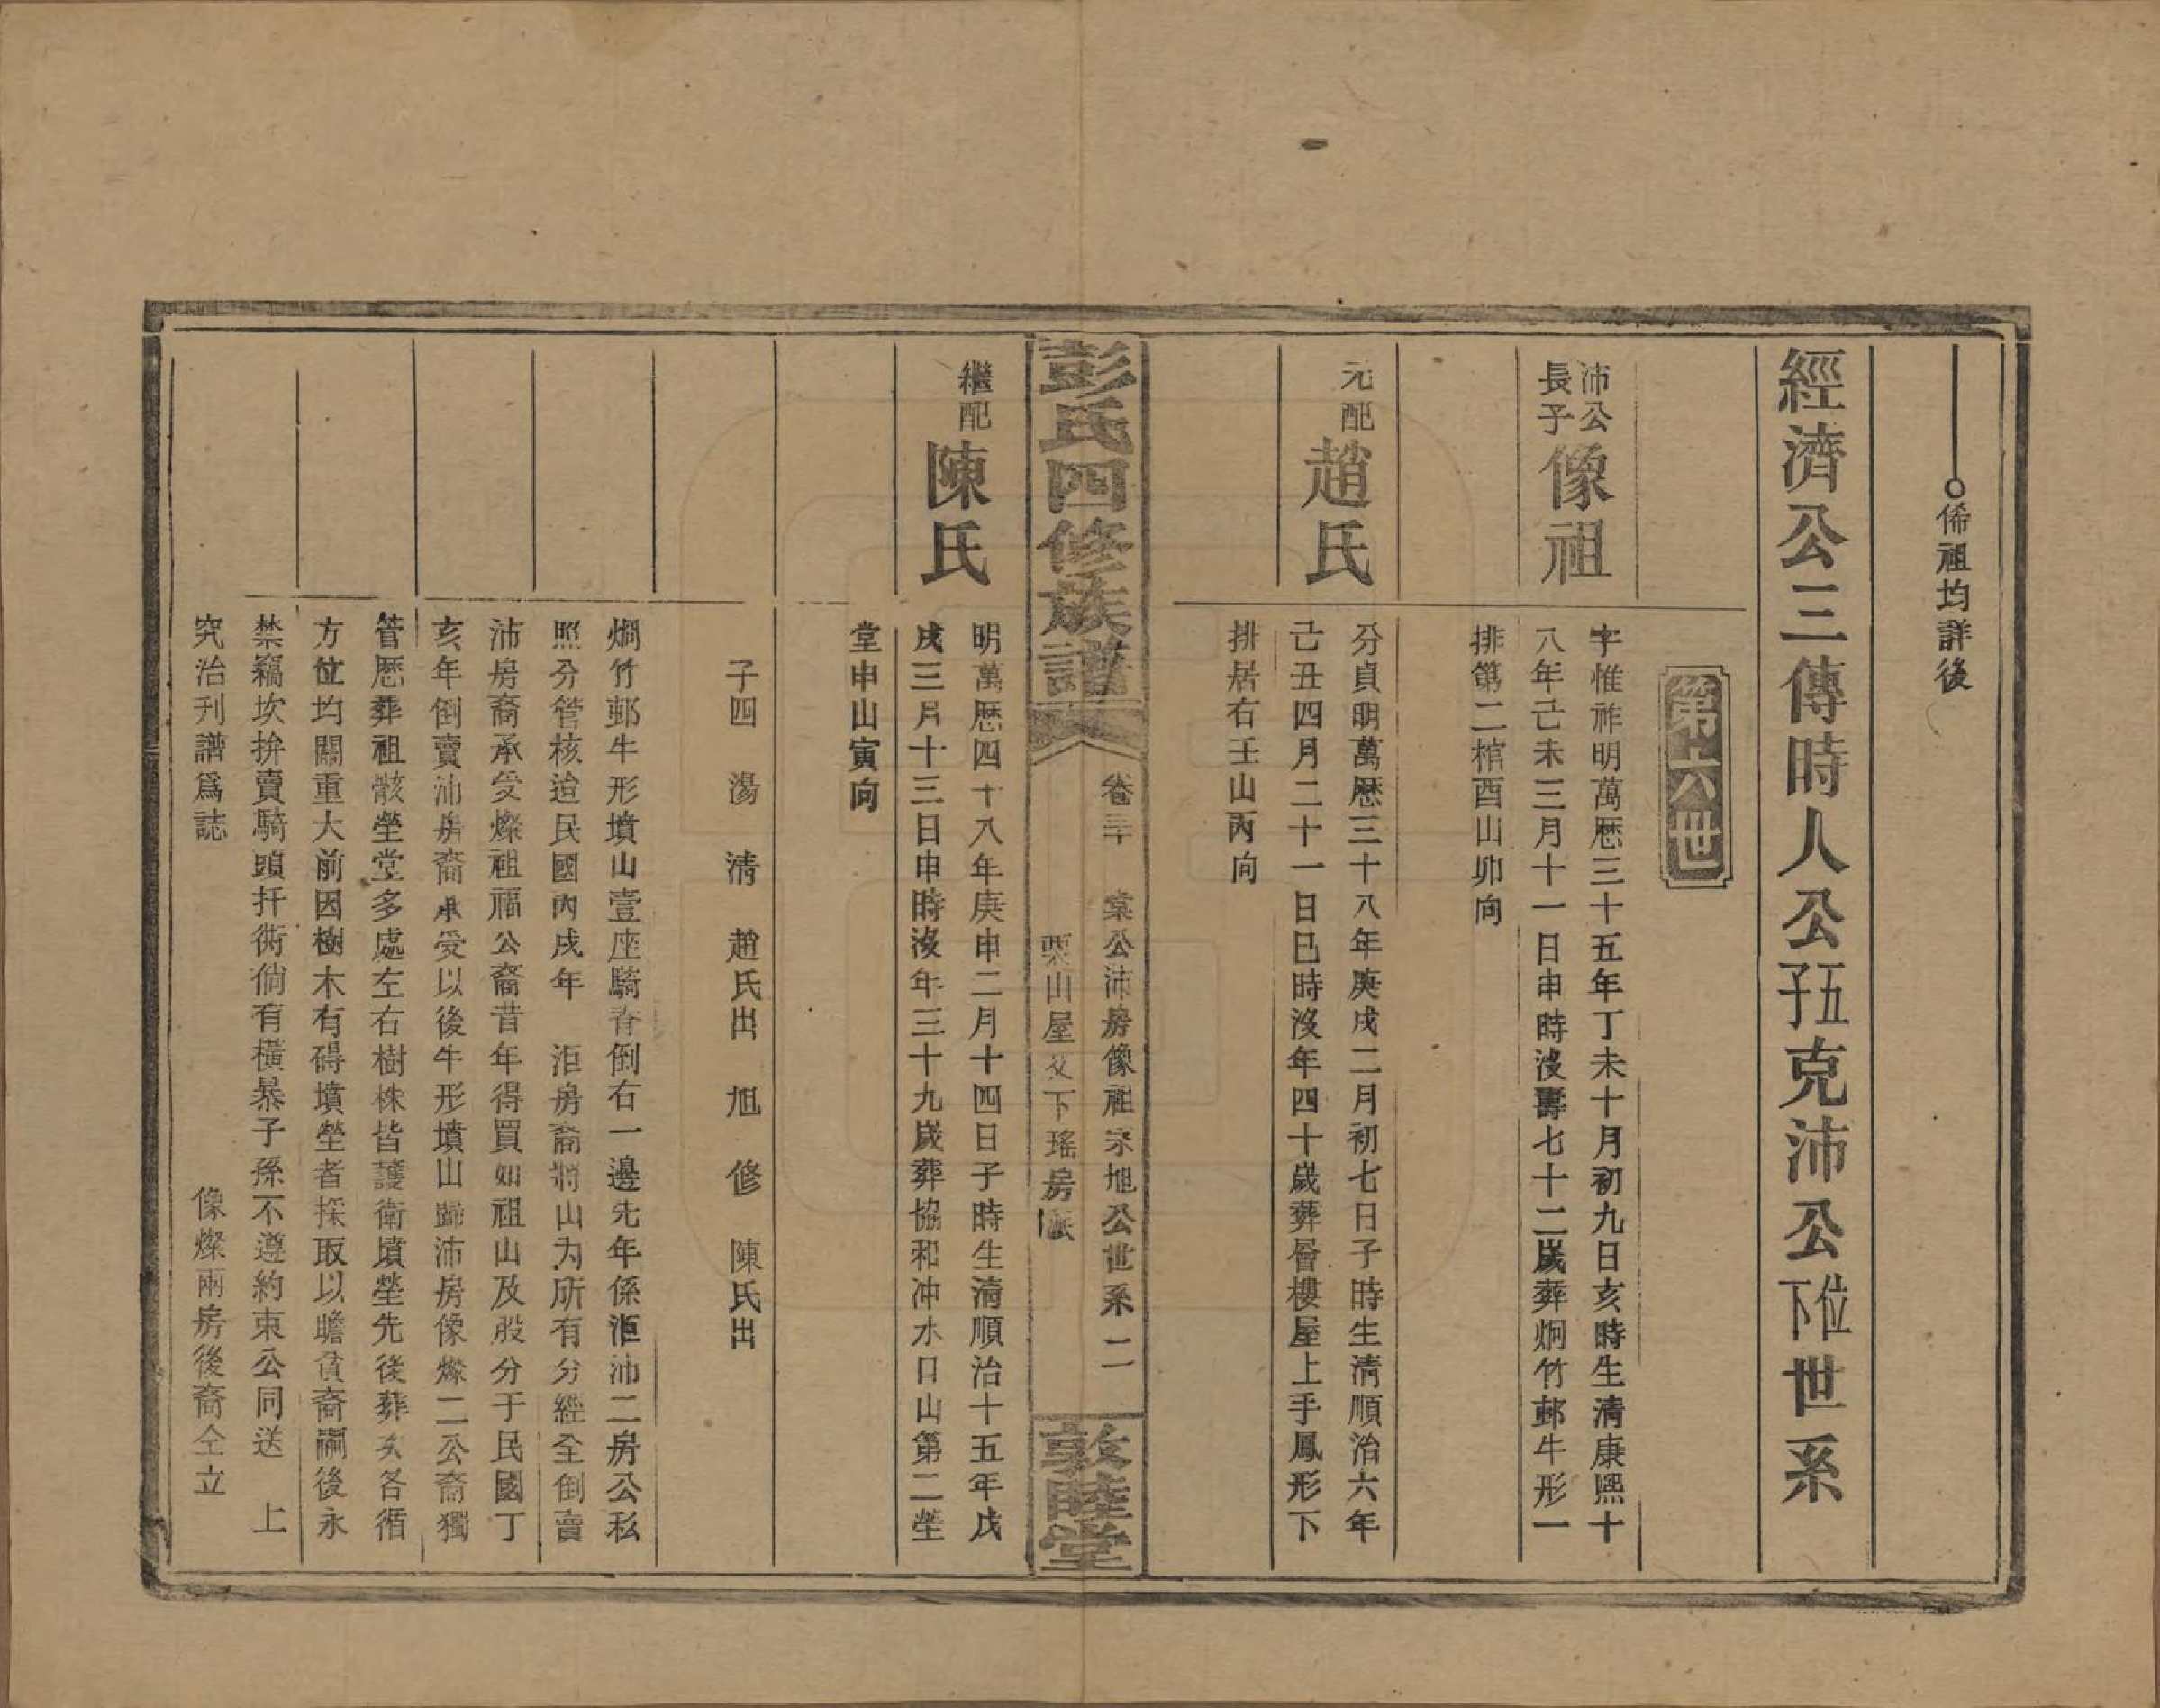 俙祖均詳後
經濟公三傳時人公五子克沛公位下世系
第十六世
沛公長子 像祖
字惟祚明萬歷三十五年丁未十月初九日亥時生清康熙十
八年己未三月十一日申時沒壽七十二歲葬炯竹邨牛形一
排第二棺酉山卯向
元配 趙氏
分貞明萬歷三十八年庚戌二月初七日子時生清順治六年
己丑四月二十一日巳時沒年四十歲葬層樓屋上手鳳形下
排居右壬山丙向
彭氏四修族譜
卷三十 棠公沛房像祖宗旭公世系 二
栗山屋下瑤房派
敦睦堂
繼配 陳氏
明萬歷四十八年庚申二月十四日子時生清順治十五年戊
戌三月十三日申時沒年三十九歲葬協和冲水口山第二塋
堂申山寅向
子四 湯 清 趙氏出 旭 修 陳氏出
炯竹邨牛形墳山壹座騎脊倒右一邊先年係洰沛二房公私
照分管核迨民國丙戌年 洰房裔將山內所有分經全倒賣
沛房裔承受燦祖福公裔昔年得買如祖山及股分于民國丁
亥年倒賣沛房裔承受以後牛形墳山歸沛房像燦二公裔獨
管歷葬祖骸塋堂多處左右樹株皆護衛墳塋先後葬頭各循
方位均關重大前因樹木有碍墳塋者採取以贍貧裔嗣後永
禁竊坎拚賣騎頭扦衖倘有橫暴子孫不遵約束公同送 上
究治刋譜爲誌 像燦兩房後裔仝立